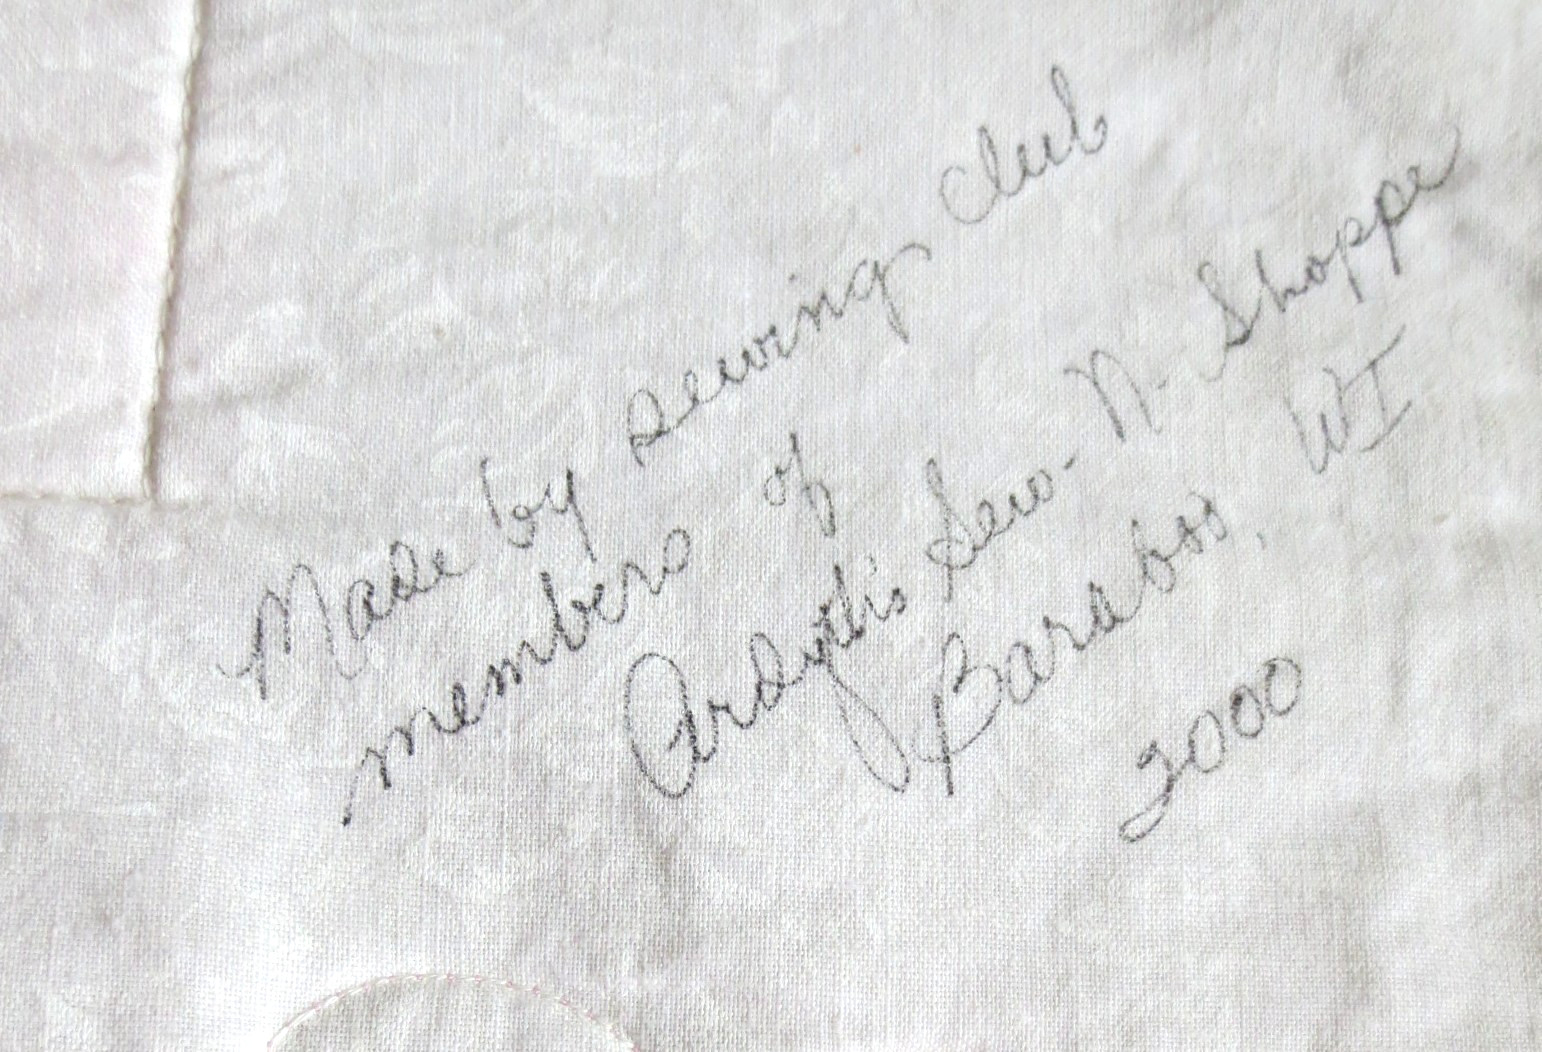 Made by sewing club
members of
Ardyth's Sew-N-Shoppe
Baraboo, WI
2000